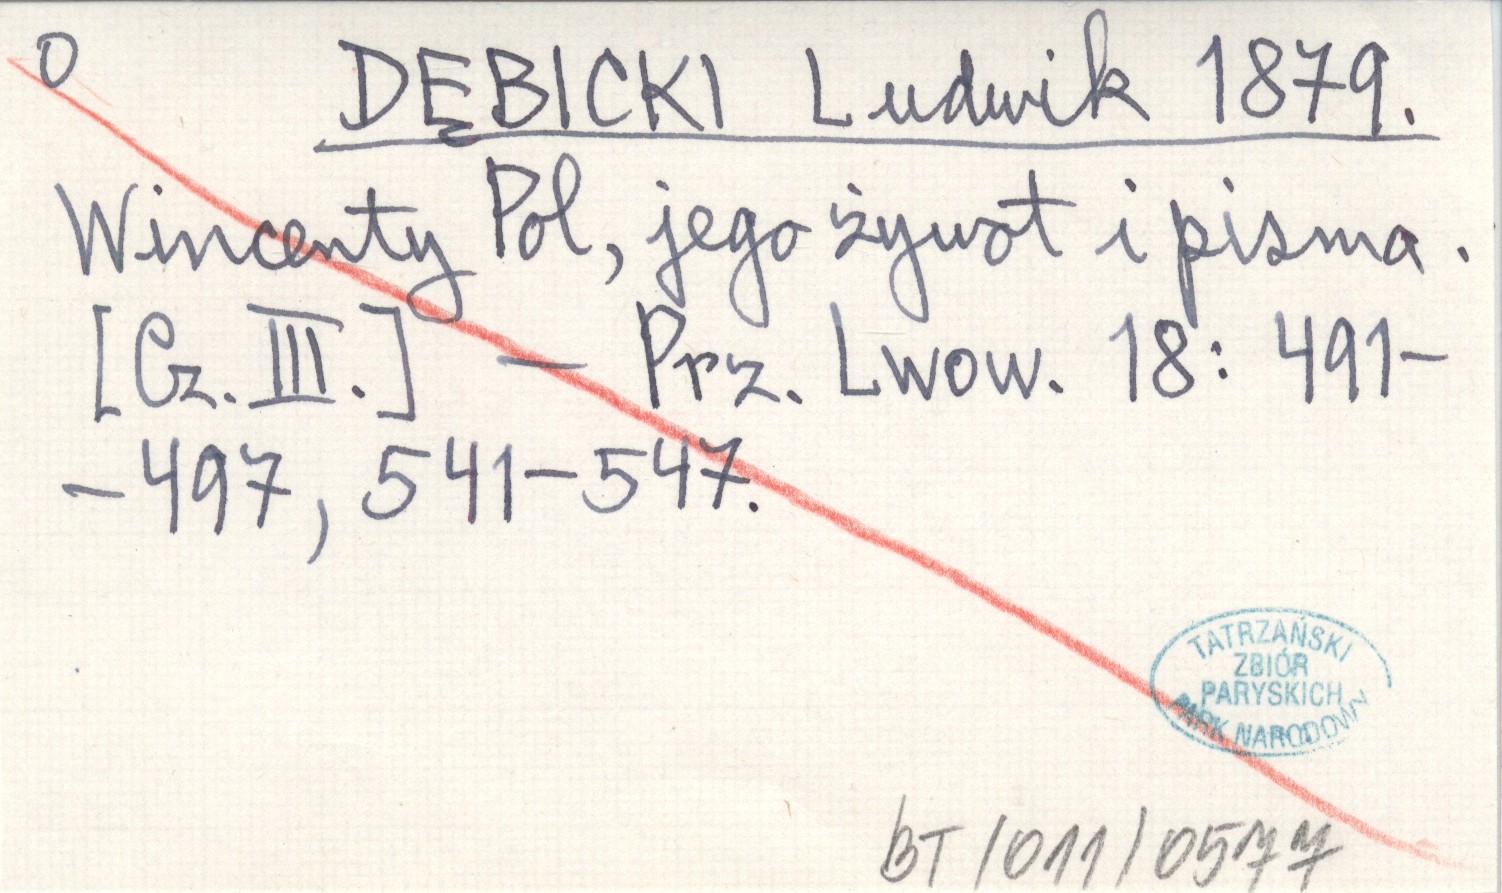 O
DĘBICKI Ludwik 1879.
Wincenty Pol, jego żywot i pisma.
[Cz. III.] — Prz. Lwow. 18: 491-
-497, 541-547.
TATRZAŃSKI
ZBIÓR
PARYSKICH
PARK NARODOWY
BT/011/0577